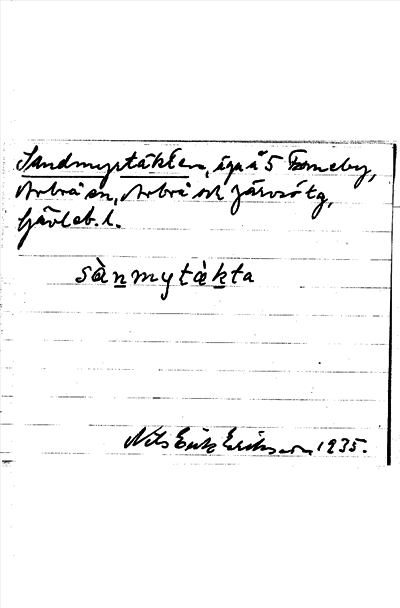 Sandmyrtäkten, äga å 5 Tomeby,
Arbrå sn, Arbrå och Järvsö tg,
Gävleb. l.
sànmytàkta
Nils Erik Eriksson 1935.